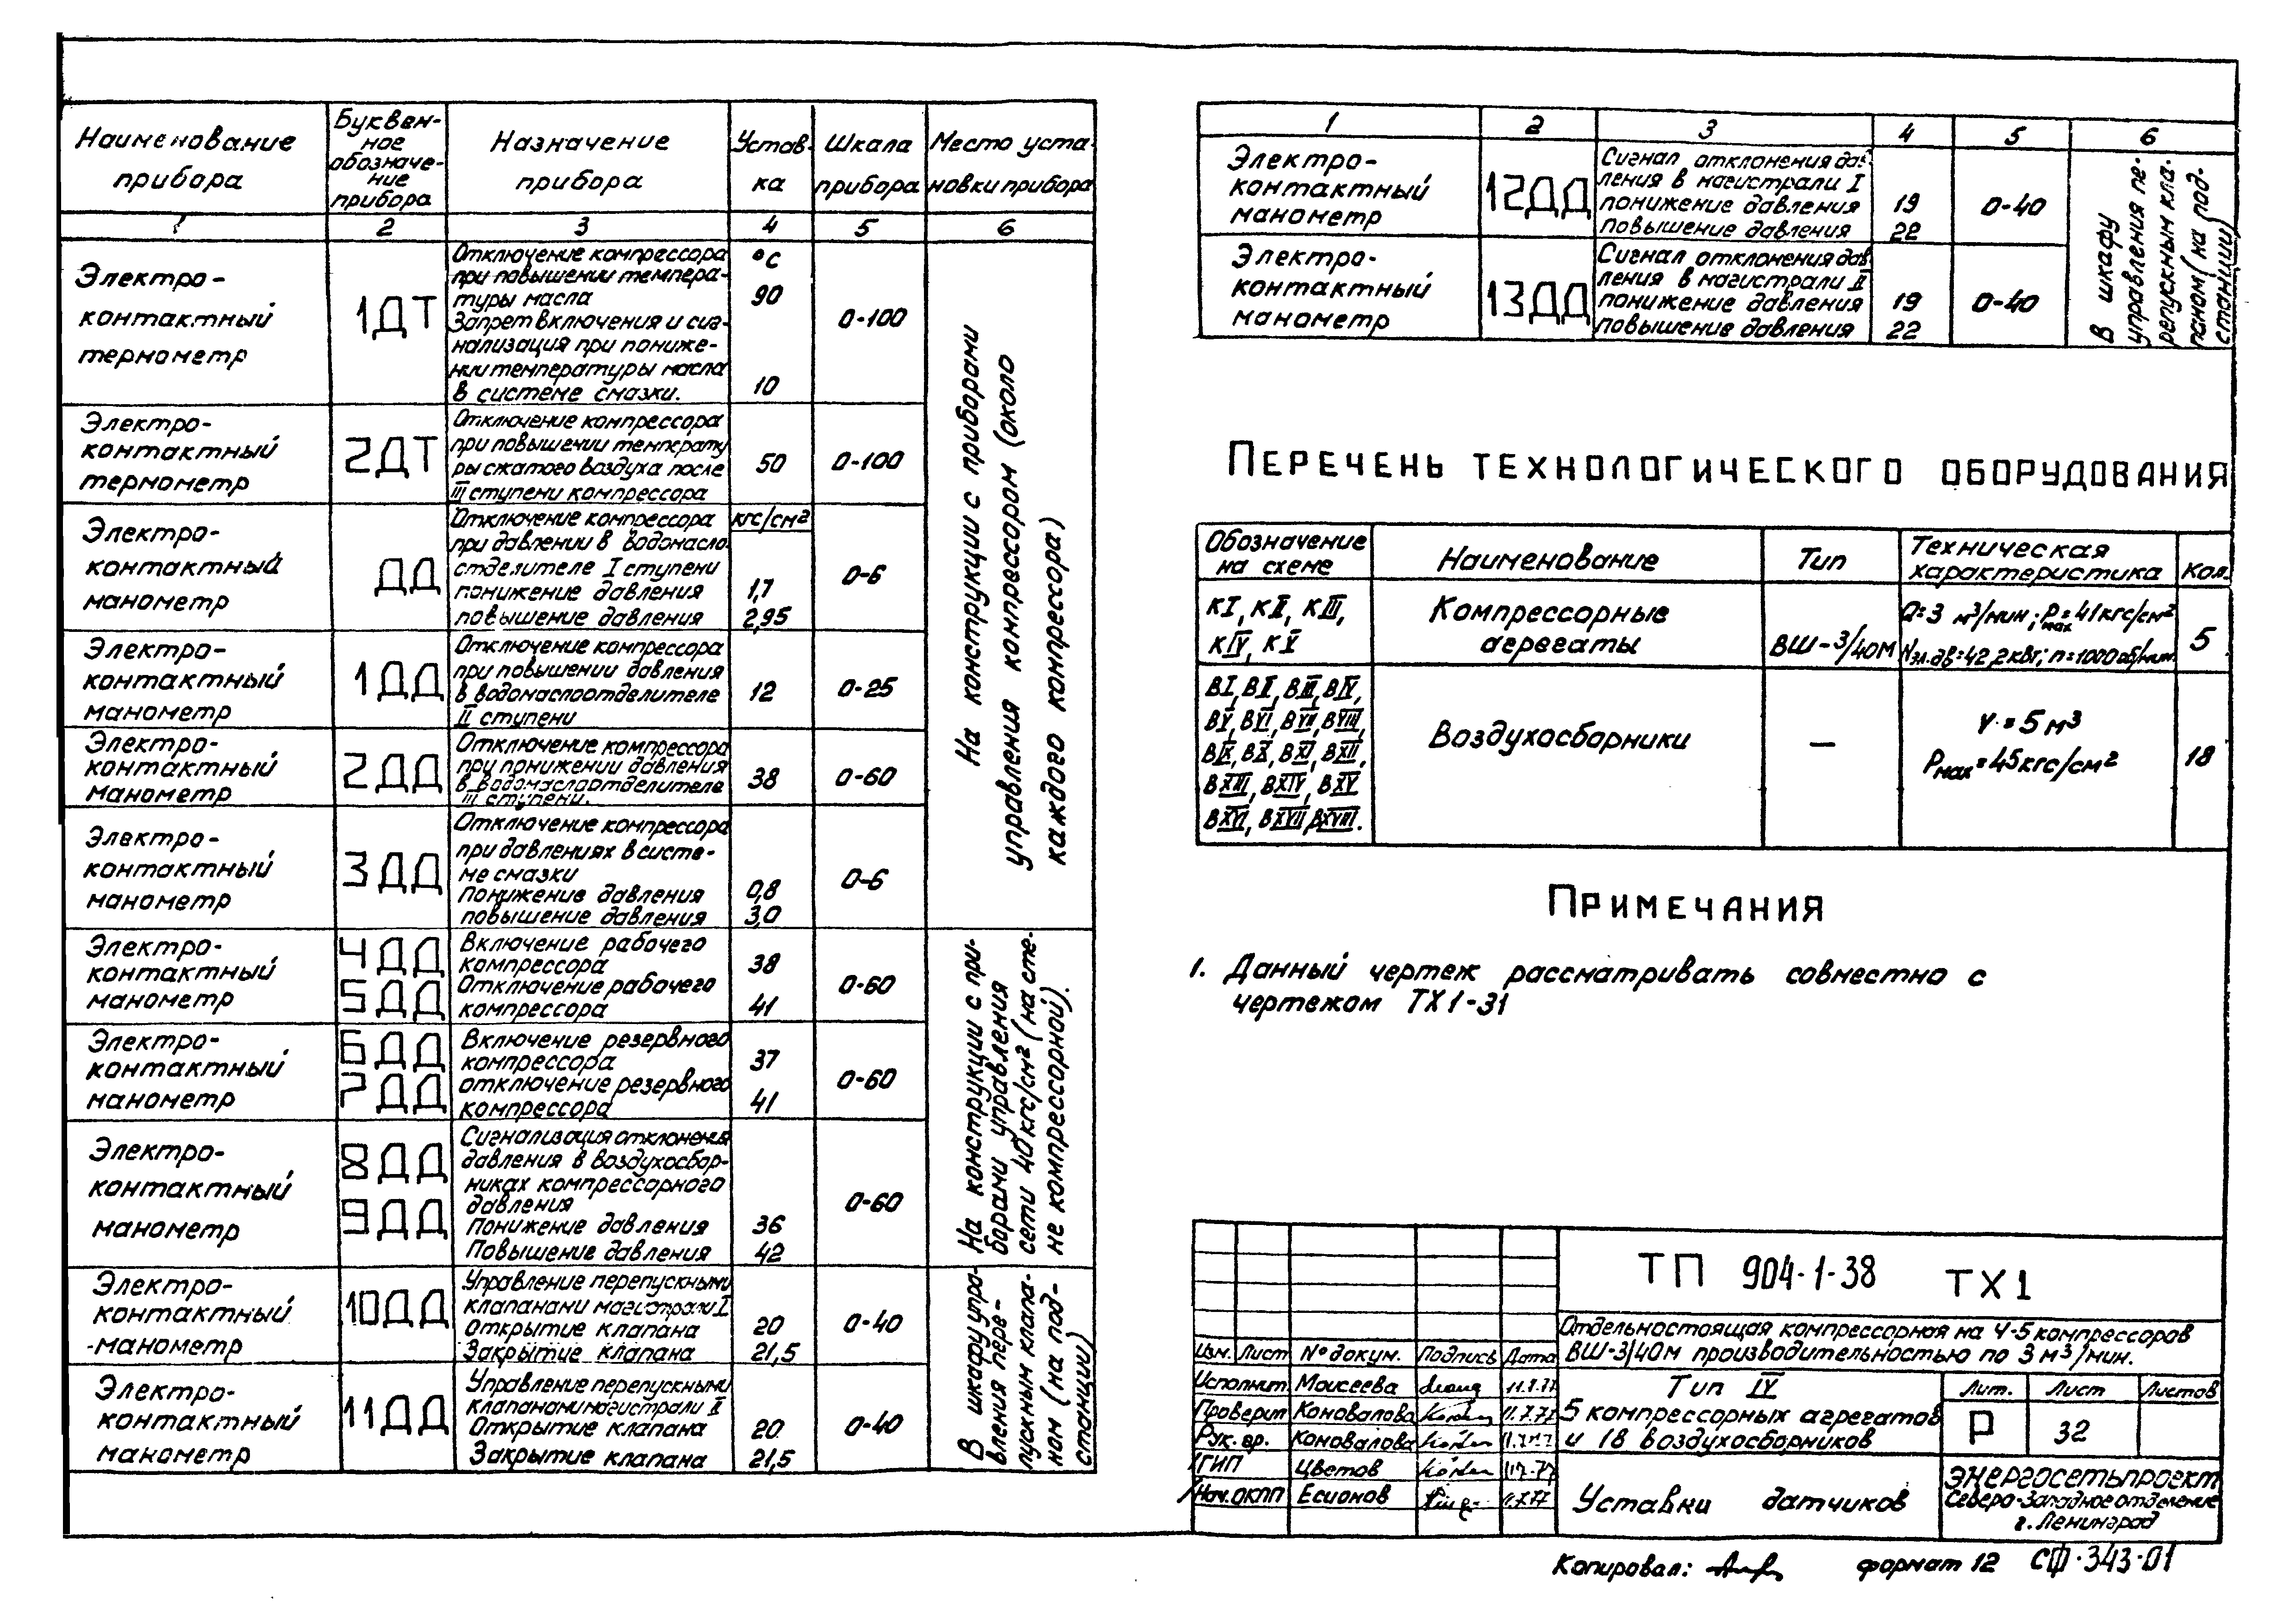 Наименование прибора
Буквен-
ное
обозначе-
ние
прибора
Назначение прибора
Устав-
ка
Шкала
прибора
Место уста-
новки прибора
1 2 3 4 5 6
Электро-
контактный
термометр
1ДТ
Отключение компрессора
при повышении темпера-
туры масла
Запрет включения и сиг-
нализация при пониже-
нии температуры масла
в системе смазки.
°С
90
10
0-100
На конструкции с приборами
управления компрессором (около
каждого компрессора)
Электро-
контактный
термометр
2ДТ
Отключение компрессора
при повышении температу
ры сжатого воздуха после
III ступени компрессора
50
0-100
Электро-
контактный
манометр
ДД
Отключение компрессора
при давлении в водомасло-
отделителе I ступени
понижение давления
повышение давления
кгс/см²
1,7
2,95
0-6
Электро-
контактный
манометр
1ДД
Отключение компрессора
при повышении давления
в водомаслоотделителе
II ступени
12
0-25
Электро-
контактный
манометр
2ДД
Отключение компрессора
при понижении давления
в водомаслоотделителе
III ступени.
38
0-60
Электро-
контактный
манометр
3ДД
Отключение компрессора
при давлениях в систе-
ме смазки
Понижение давления
повышение давления
0,8
3,0
0-6
Электро-
контактный
манометр
4ДД
5ДД
Включение рабочего
компрессора
Отключение рабочего
компрессора
38
41
0-60
На конструкции с при-
борами управления
сети 40кгс/см² (на сте-
не компрессорной).
Электро-
контактный
манометр
6ДД
7ДД
Включение резервного
компрессора
отключение резервного
компрессора
37
41
0-60
Электро-
контактный
манометр
8ДД
9ДД
Сигнализация отклонения
давления в воздухосбор-
никах компрессорного
давления
Понижение давления
Повышение давления
36
42
0-60
Электро-
контактный
-манометр
10ДД
Управление перепускными
клапанами магистрали I
Открытие клапана
Закрытие клапана
20
21,5
0-40
В шкафу упра-
вления пере-
пускным клапа-
ном (на под-
станции)
Электро-
контактный
манометр
11ДД
Управление перепускными
клапанами магистрали II
Открытие клапана
Закрытие клапана
20
21,5
0-40
1 2 3 4 5 6
Электро-
контактный
манометр
12ДД
Сигнал отклонения дав-
ления в магистрали I
понижение давления
повышение давления
19
22
0-40
В шкафу
управления пе-
репускным кла-
паном (на под-
станции)
Электро-
контактный
манометр
13ДД
Сигнал отклонения дав
ления в магистрали II
понижение давления
повышение давления
19
22
0-40
Перечень технологического оборудования
Обозначение
на схеме
Наименование
Тип
Техническая
характеристика
Кол.
КI, КII, КIII,
КIV, КV
Компрессорные
агрегаты
ВШ-3/40М
Q=3 м³/мин; Рmax=41кгс/см²
Nэл.дв=42,2квт; n=1000об/мин
5
ВI, ВII, ВIII, ВIV,
ВV, ВVI, ВVII, ВVIII,
ВIX, ВX, ВXI, ВXII,
ВXIII, ВXIV, ВXV
ВXVI, ВXVII, ВXVIII.
Воздухосборники
—
V=5м³
Рмах=45кгс/см²
18
Примечания
1. Данный чертеж рассматривать совместно с
чертежом ТХ1-31
ТП 904-1-38 ТХ1
Отдельностоящая компрессорная на 4-5 компрессоров
ВШ-3/40м производительностью по 3 м³/мин.
Изм. Лист № докум. Подпись Дата
Исполнит Моисеева 11.7.77
Проверил Коновалова 11.7.77
Рук. гр. Коновалова 11.7.77
ГИП Цветов 11.7.77
Нач. ОКПП Есионов 11.7.77
Тип IV
5 компрессорных агрегатов
и 18 воздухосборников
Лит. Лист Листов
Р 32
Уставки датчиков
Энергосетьпроект
Северо-Западное отделение
г. Ленинград
Копировал: формат 12 СФ-343-01